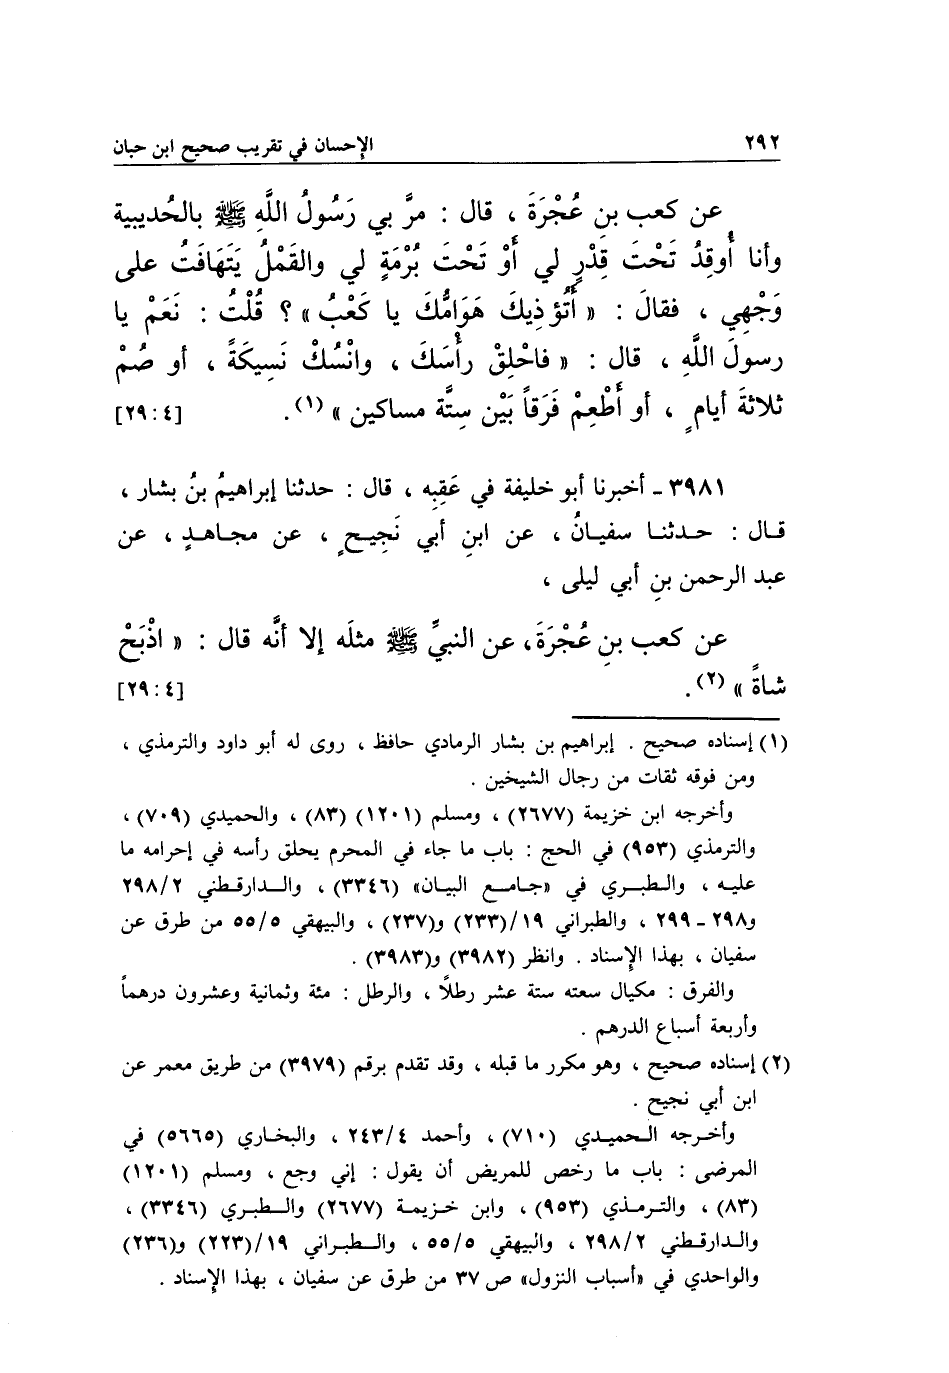 ٢٩٢ الإحسان في تقريب صحيح ابن حبان
عن كعب بنِ عُجْرَةَ ، قال : مرَّ بي رَسُولُ اللَّهِ ﷺ بالحُديبية
وأنا أُوقِدُ تَحْتَ قِدْرٍ لي أَوْ تَحْتَ بُرْمَةٍ لي والقَمْلُ يَتَهَافَتُ على
وَجْهِي ، فقالَ : « أَتُؤذِيكَ هَوَامُّكَ يا كَعْبُ » ؟ قُلْتُ : نَعَمْ يا
رسولَ اللَّهِ ، قال : « فاحْلِقْ رأْسَكَ ، وانْسُكْ نَسِيكَةً ، أو صُمْ
ثلاثةَ أيامٍ ، أو أَطْعِمْ فَرَقاً بَيْن ستَّة مساكين » (١). [٤ : ٢٩]
٣٩٨١ ـ أخبرنا أبو خليفة في عَقِبِه ، قال : حدثنا إبراهيمُ بنُ بشار ،
قال : حدثنا سفيانُ ، عن ابنِ أبي نَجِيحٍ ، عن مجاهدٍ ، عن
عبد الرحمن بنِ أبي ليلى ،
عن كعب بنِ عُجْرَةَ، عن النبيِّ ﷺ مثلَه إلا أنَّه قال : « اذْبَحْ
شاةً » (٢). [٤ : ٢٩]
(١) إسناده صحيح . إبراهيم بن بشار الرمادي حافظ ، روى له أبو داود والترمذي ،
ومن فوقه ثقات من رجال الشيخين .
وأخرجه ابن خزيمة (٢٦٧٧) ، ومسلم (١٢٠١) (٨٣) ، والحميدي (٧٠٩) ،
والترمذي (٩٥٣) في الحج : باب ما جاء في المحرم يحلق رأسه في إحرامه ما
عليه ، والطبري في «جامع البيان» (٣٣٤٦) ، والدارقطني ٢٩٨/٢
و٢٩٨ ـ ٢٩٩ ، والطبراني ١٩/(٢٣٣) و(٢٣٧) ، والبيهقي ٥٥/٥ من طرق عن
سفيان ، بهذا الإسناد . وانظر (٣٩٨٢) و(٣٩٨٣) .
والفرق : مكيال سعته ستة عشر رطلاً ، والرطل : مئة وثمانية وعشرون درهماً
وأربعة أسباع الدرهم .
(٢) إسناده صحيح ، وهو مكرر ما قبله ، وقد تقدم برقم (٣٩٧٩) من طريق معمر عن
ابن أبي نجيح .
وأخرجه الحميدي (٧١٠) ، وأحمد ٢٤٣/٤ ، والبخاري (٥٦٦٥) في
المرضى : باب ما رخص للمريض أن يقول : إني وجع ، ومسلم (١٢٠١)
(٨٣) ، والترمذي (٩٥٣) ، وابن خزيمة (٢٦٧٧) والطبري (٣٣٤٦) ،
والدارقطني ٢٩٨/٢ ، والبيهقي ٥٥/٥ ، والطبراني ١٩/(٢٢٣) و(٢٣٦)
والواحدي في «أسباب النزول» ص ٣٧ من طرق عن سفيان ، بهذا الإسناد .